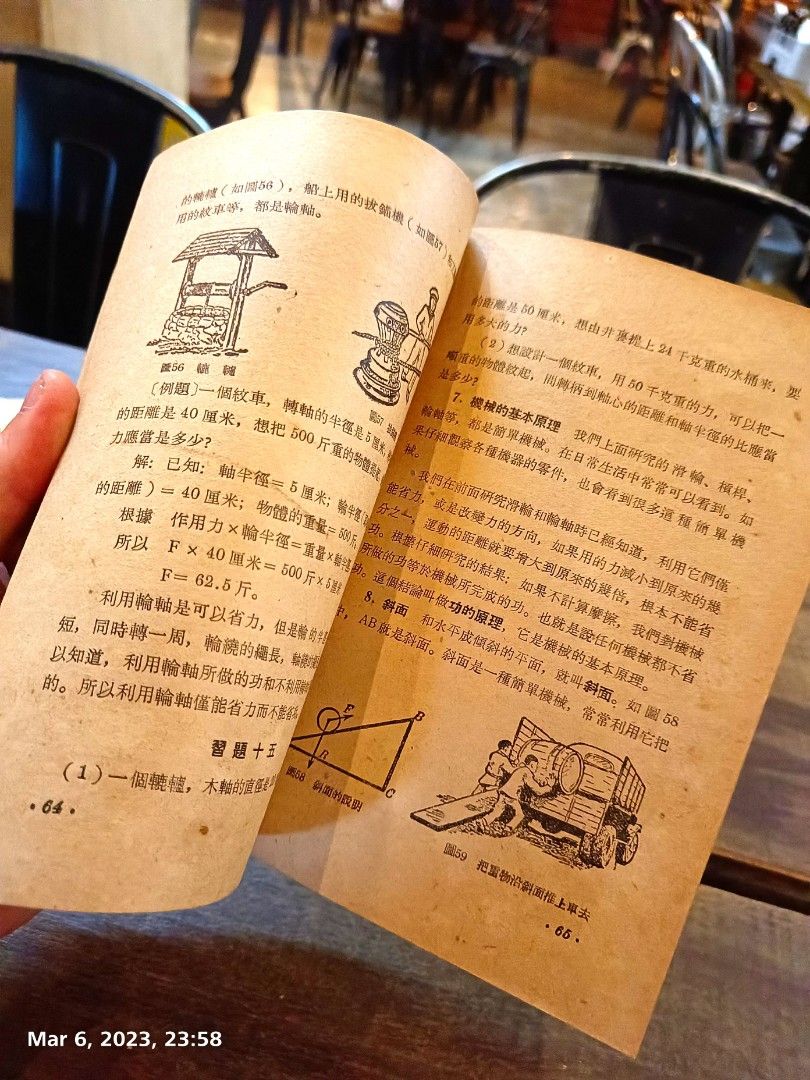 的轆轤（如圖56），船上用的拔錨機（如圖57）
用的絞車等，都是輪軸。
圖56 轆轤
圖57
〔例題〕一個絞車，轉軸的半徑是5厘米，
的距離是40厘米，想把500斤重的物體
力應當是多少？
解：已知：軸半徑＝5厘米；輪半徑（
的距離）＝40厘米；物體的重量＝500斤。
根據 作用力×輪半徑＝重量×軸
所以 F×40厘米＝500斤×5厘米
F＝62.5斤。
利用輪軸是可以省力，但是輪的半
短，同時轉一周，輪繞的繩長，軸繞的
以知道，利用輪軸所做的功和不利用
的。所以利用輪軸僅能省力而不能省
習題十五
（1）一個轆轤，木軸的直徑是
·64·
的距離是50厘米，想由井裏提上24千克重的水桶來，要
用多大的力？
（2）想設計一個絞車，用50千克重的力，可以把一
噸重的物體絞起，問轉柄到軸心的距離和軸半徑的比應當
是多少？
7．機械的基本原理 我們上面研究的滑輪、槓桿、
輪軸等，都是簡單機械。在日常生活中常常可以看到。如
果仔細觀察各種機器的零件，也會看到很多這種簡單機
械。
我們在前面研究滑輪和輪軸時已經知道，利用它們僅
能省力，或是改變力的方向，如果用的力減小到原來的幾
分之一，運動的距離就要增大到原來的幾倍，根本不能省
功。根據仔細研究的結果：如果不計算摩擦，我們對機械
所做的功等於機械所完成的功。也就是說任何機械都不省
功。這個結論叫做功的原理，它是機械的基本原理。
8．斜面 和水平成傾斜的平面，就叫斜面。如圖58
中，AB就是斜面。斜面是一種簡單機械，常常利用它把
F
B
R
C
圖58 斜面的說明
圖59 把重物沿斜面推上車去
·65·
Mar 6, 2023, 23:58